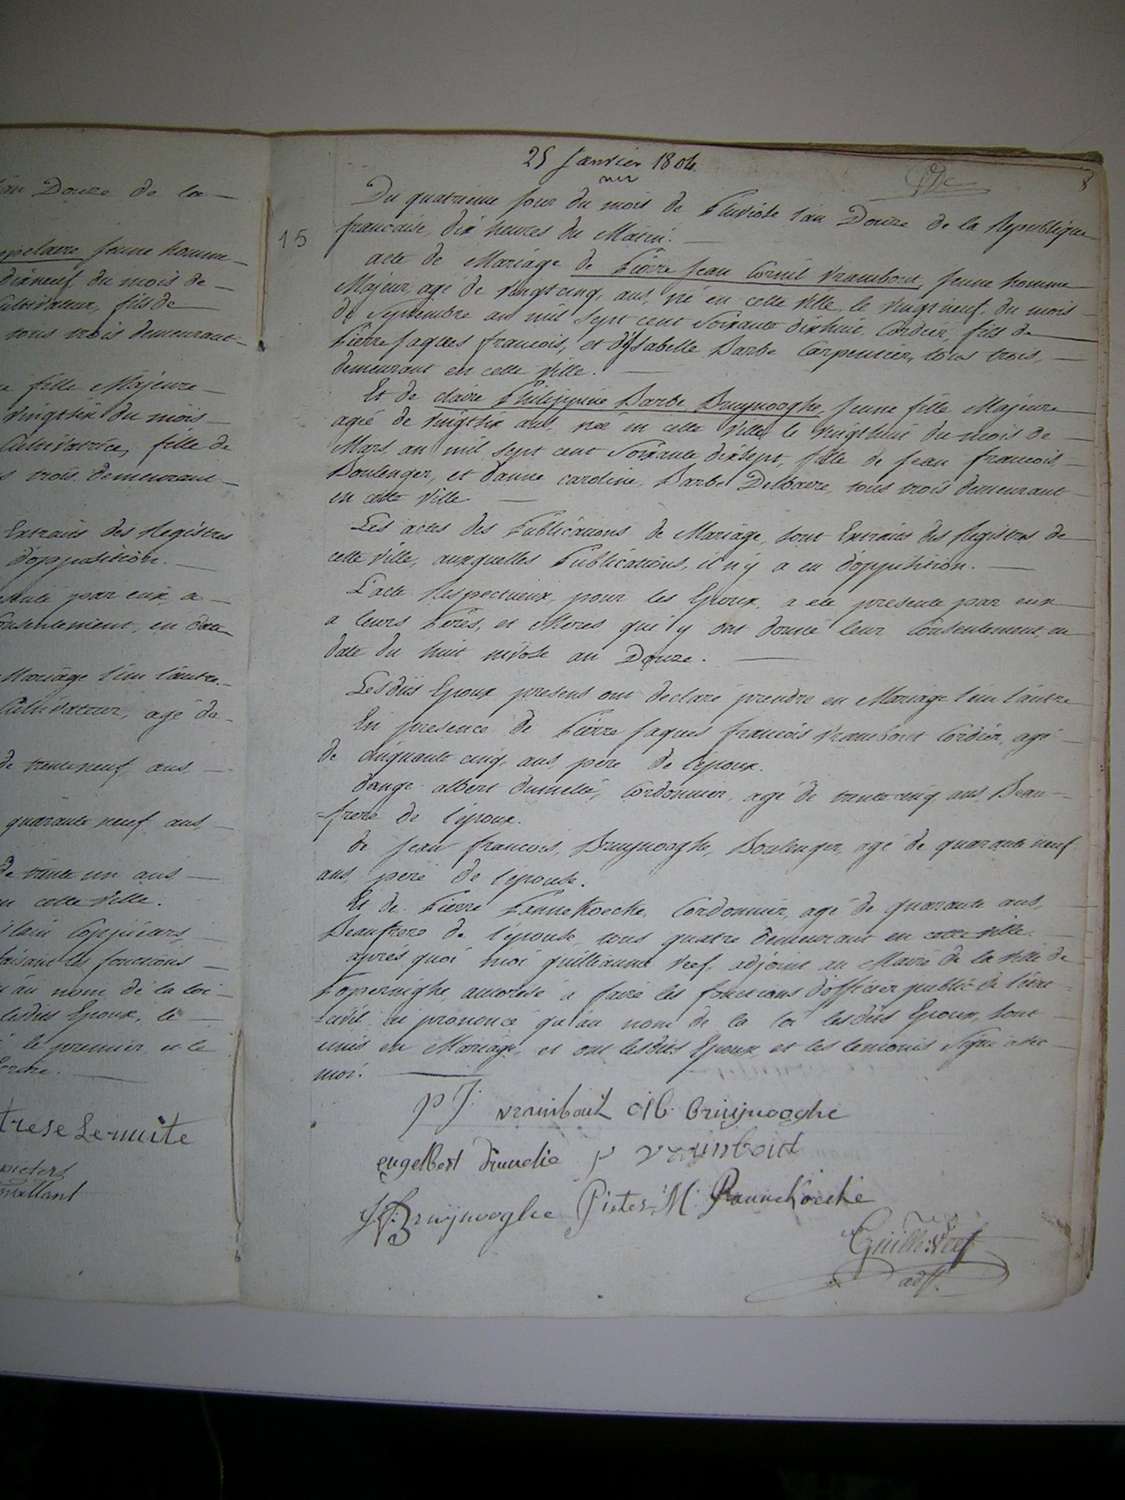 25 Janvier 1804
8
15
Du quatrieme jour du mois de Pluviose l'an Douze de la Republique
francaise, dix heures du Matin. —
acte de Mariage de Pierre Jean Cornil Vrambout, Jeune homme
Majeur agé de vingtcinq ans, né en cette Ville, le vingtneuf du mois
de Septembre an mil Sept cent Soixante dixhuit, Cordier, fils de
Pierre Jaques francois, et d'Isabelle Barbe Carpentier, tous trois
demeurant en cette Ville. —
Et de claire Philippine Barbe Bruynooghe, Jeune fille Majeure
agée de vingtsix ans, née en cette Ville, le vingthuit du mois de
Mars an mil Sept cent Soixante dixsept, fille de Jean francois
Boulenger, et d'anne caroline Barbe Delbaere, tous trois demeurant
en cette Ville —
Les actes des Publications de Mariage, sont Extraits des Registres de
cette Ville, auxquelles Publications, il n'y a eu d'opposition. —
L'acte Respectueux, pour les Epoux, a ete presente par eux
a leurs Peres, et Meres qui y ont donné leur Consentement en
date du huit nivose an Douze. —
Lesdits Epoux presens ont declare prendre en Mariage l'un l'autre
En presence de Pierre Jaques francois Vrambout Cordier, agé
de cinquante cinq ans, pere de l'epoux.
d'ange albert Cordonnier, agé de trente cinq ans Beau-
-frere de l'epoux.
de Jean francois Bruynooghe Boulenger, agé de quarante neuf
ans, pere de l'epouse.
Et de Pierre Pannekoecke, Cordonnier, agé de quarante ans,
Beaufrere de l'epouse, tous quatre demeurant en cette ville.
après quoi moi guilliaume Veef, adjoint au Maire de la Ville de
Poperinghe autorisé a faire les fonctions d'officier public de l'etat
-civil ai prononcé qu'au nom de la loi lesdits Epoux, sont
unis en Mariage, et ont lesdits Epoux et les temoins Signé avec
moi. —
p J: vrambout c p b: bruynooghe
engelbert p vrambout
J F: Bruynooghe Pieter: M: Pannekoecke
Guill: Veef
adjt.
l'an Douze de la —
Jeune homme —
dixneuf du mois de —
Cultivateur, fils de
tous trois demeurant —
fille Majeure —
vingtsix du mois —
Cultivatrice, fille de
trois demeurant —
Extraits des Registres
d'opposition. —
par eux, a —
consentement, en date
Mariage l'un l'autre. —
Cultivateur, agé de —
de trenteneuf ans —
quarante neuf ans, —
de trente un ans —
en cette Ville.
faisant les fonctions —
qu'au nom de la loi —
lesdits Epoux, le —
le premier et le
trese Lermite
pieters